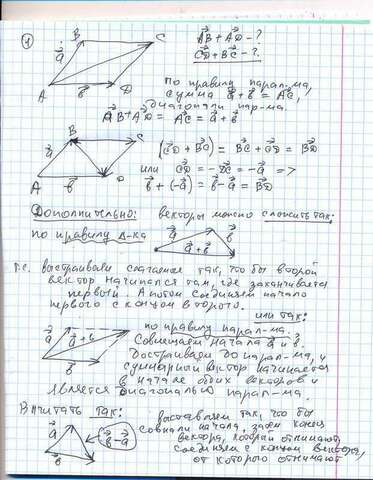 1
B C A D a⃗ b⃗
AB⃗ + AD⃗ - ?
CD⃗ + BC⃗ - ?
по правилу парал-ма,
сумма a⃗ + b⃗ = AC⃗,
диагонали пар-ма.
AB⃗ + AD⃗ = AC⃗ = a⃗ + b⃗
B C A D a⃗ b⃗
(CD⃗ + BC⃗) = BC⃗ + CD⃗ = BD⃗
или CD⃗ = -DC⃗ = -a⃗ =>
b⃗ + (-a⃗) = b⃗ - a⃗ = BD⃗
Дополнительно: векторы можно сложить так:
по правилу Δ-ка
a⃗ b⃗ a⃗ + b⃗
т.е. выстраиваем слагаемые так, что бы второй
вектор начинался там, где заканчивается
первый. А потом соединяем начало
первого с концом второго.
или так:
a⃗ a⃗ + b⃗ b⃗
по правилу парал-ма.
Совмещаем начала a⃗ и b⃗.
Достраиваем до парал-ма, и
суммарный вектор начинается
в начале обоих векторов и
является диагональю парал-ма.
Вычитать так:
a⃗ b⃗ b⃗ - a⃗
выставляем так, что бы
совпали начала, затем конец
вектора, который отнимают,
соединяем с концом вектора,
от которого отнимают